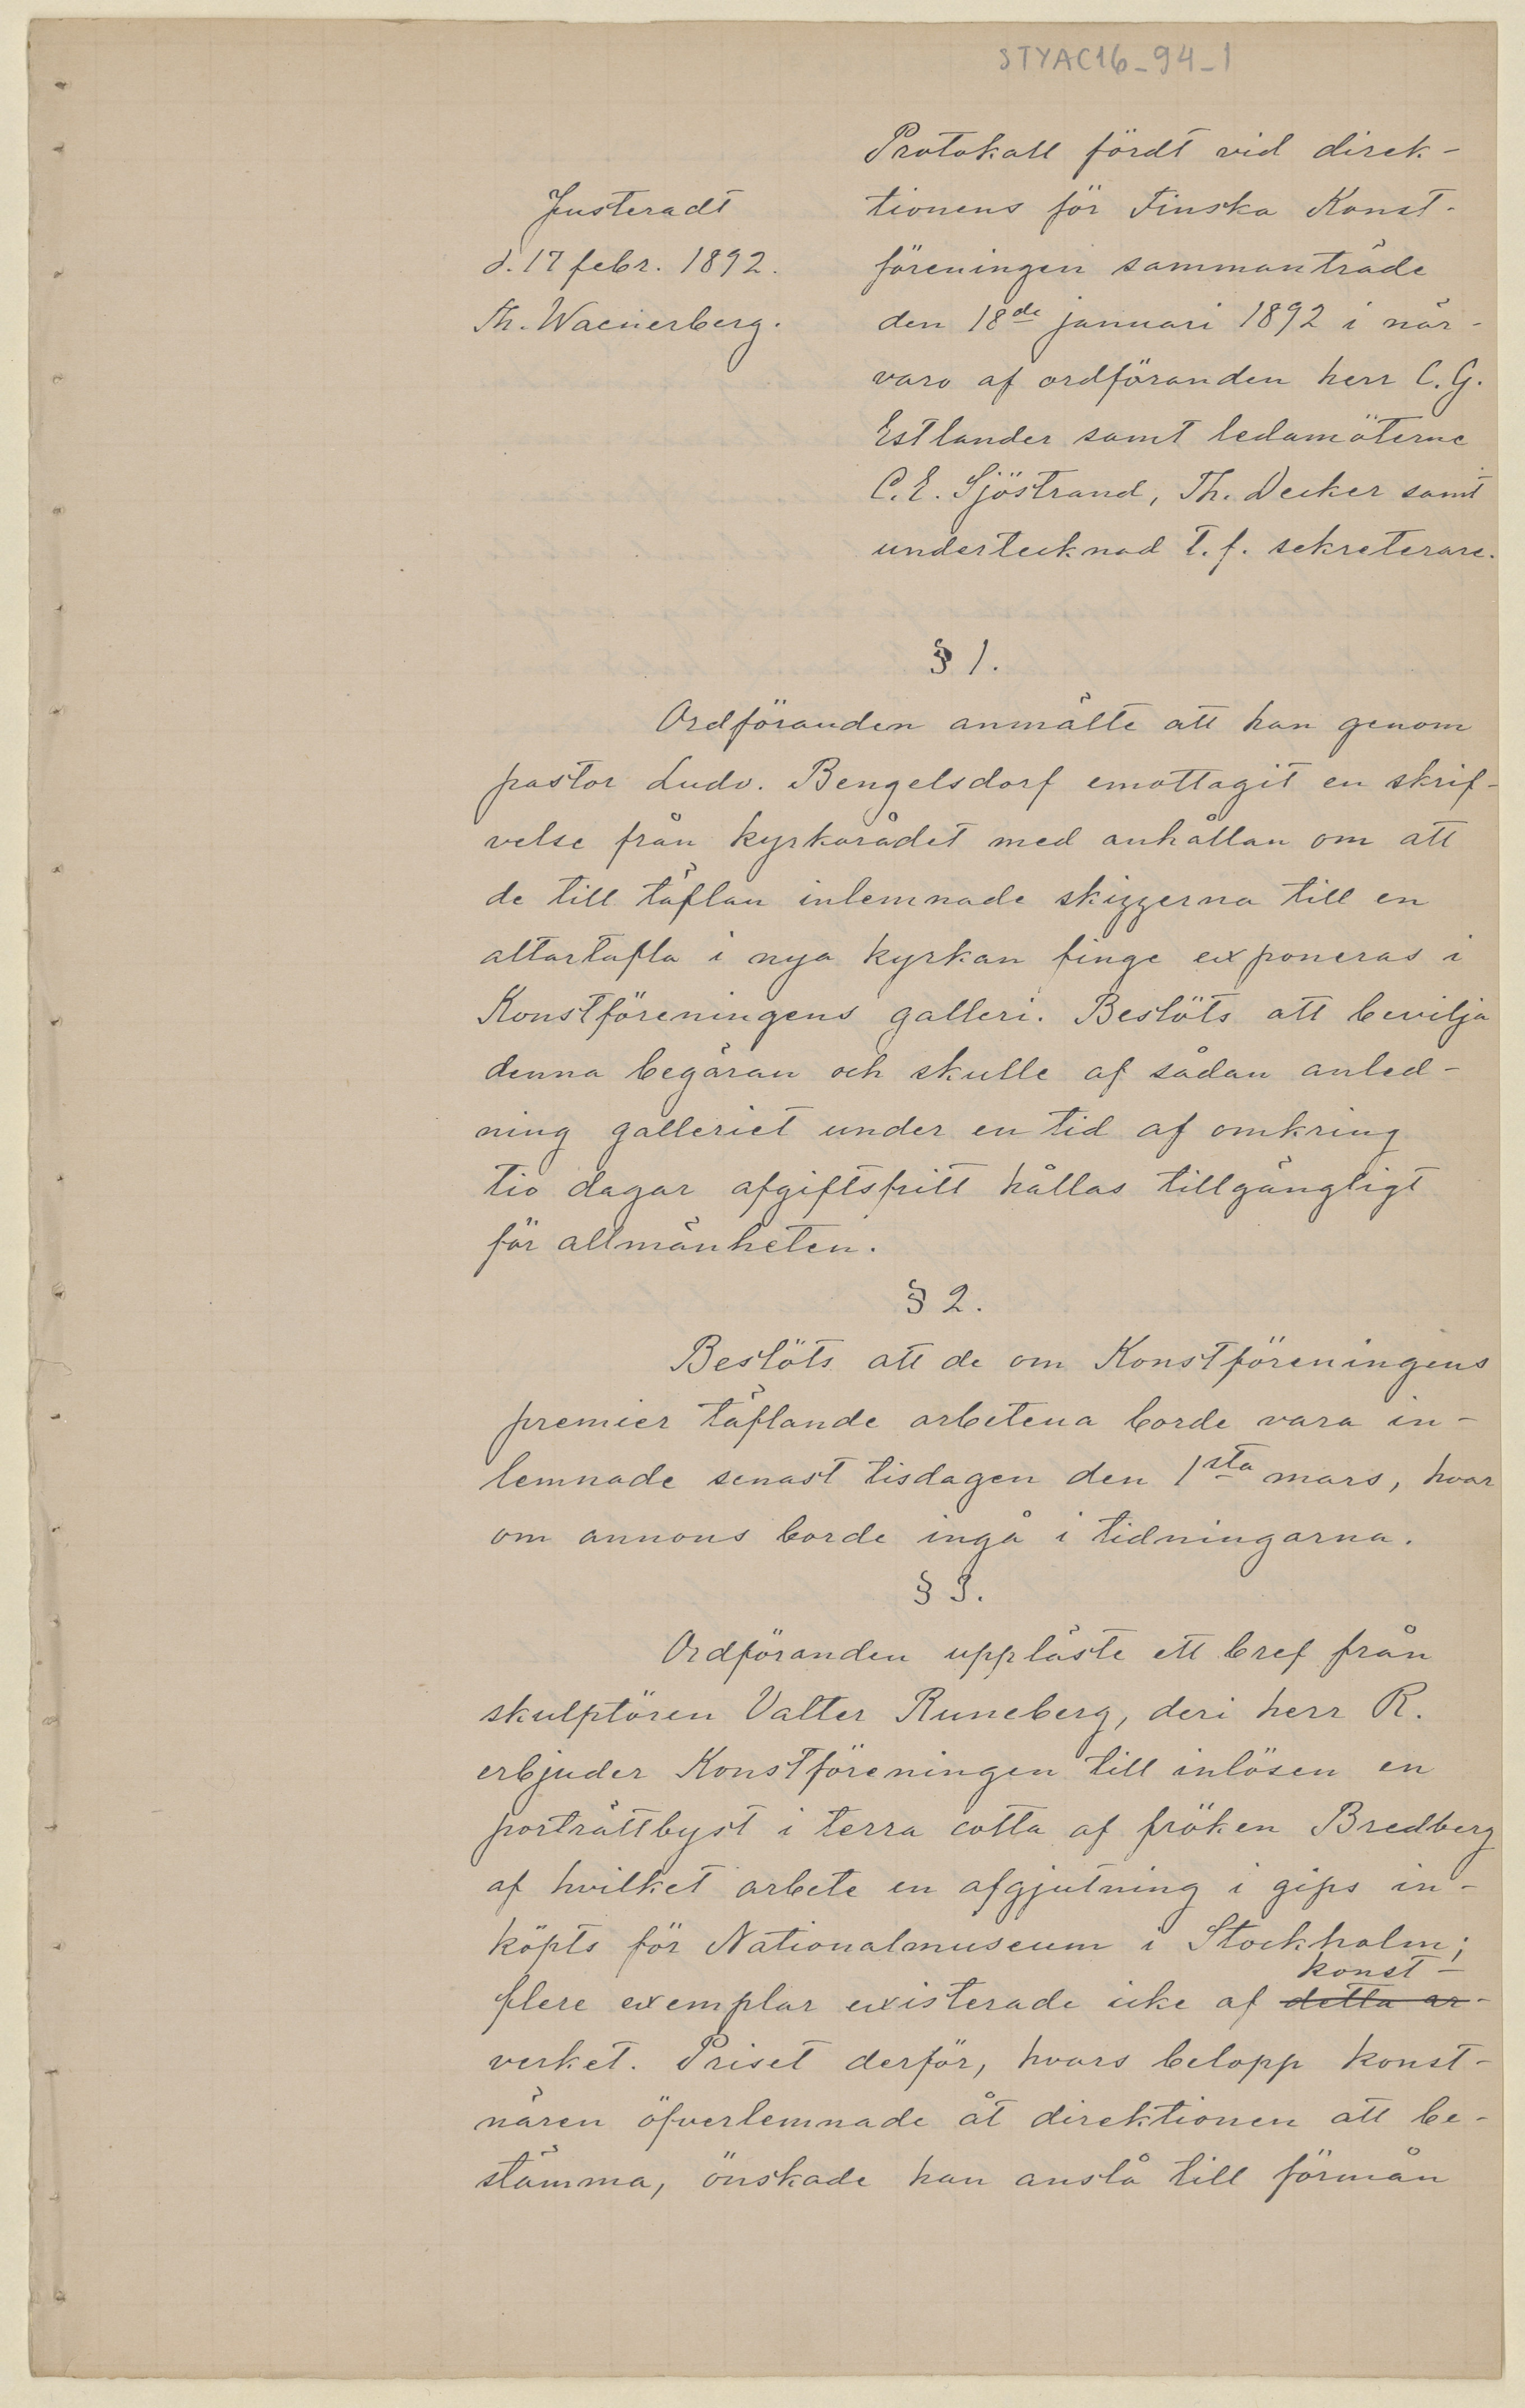 STYAC16_94_1
Protokoll fördt vid direk-
tionens för Finska Konst-
föreningen sammanträde
den 18de januari 1892 i när-
varo af ordföranden herr C. G.
Estlander samt ledamöterne
C. E. Sjöstrand, Th. Decker samt
undertecknad t. f. sekreterare.
Justeradt
d. 17 febr. 1892.
Th. Waenerberg.
§ 1.
Ordföranden anmälte att han genom
pastor Ludv. Bengelsdorf emottagit en skrif-
velse från kyrkorådet med anhållan om att
de till täflan inlemnade skizzerna till en
altartafla i nya kyrkan finge exponeras i
Konstföreningens galleri. Beslöts att bevilja
denna begäran och skulle af sådan anled-
ning galleriet under en tid af omkring
tio dagar afgiftsfritt hållas tillgängligt
för allmänheten.
§ 2.
Beslöts att de om Konstföreningens
premier täflande arbetena borde vara in-
lemnade senast tisdagen den 1sta mars, hvar
om annons borde ingå i tidningarna.
§ 3.
Ordföranden uppläste ett bref från
skulptören Valter Runeberg, deri herr R.
erbjuder Konstföreningen till inlösen en
porträttbyst i terra cotta af fröken Bredberg
af hvilket arbete en afgjutning i gips in-
köpts för Nationalmuseum i Stockholm;
konst-
flere exemplar existerade icke af detta ar-
verket. Priset derför, hvars belopp konst-
nären öfverlemnade åt direktionen att be-
stämma, önskade han anslå till förmån